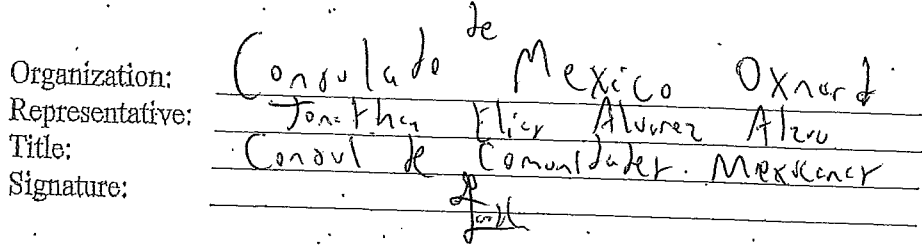 Organization: Consulado de Mexico Oxnard
Representative: Jonathan Elias Alvarez Alzua
Title: Consul de Comunidades Mexicanas
Signature: